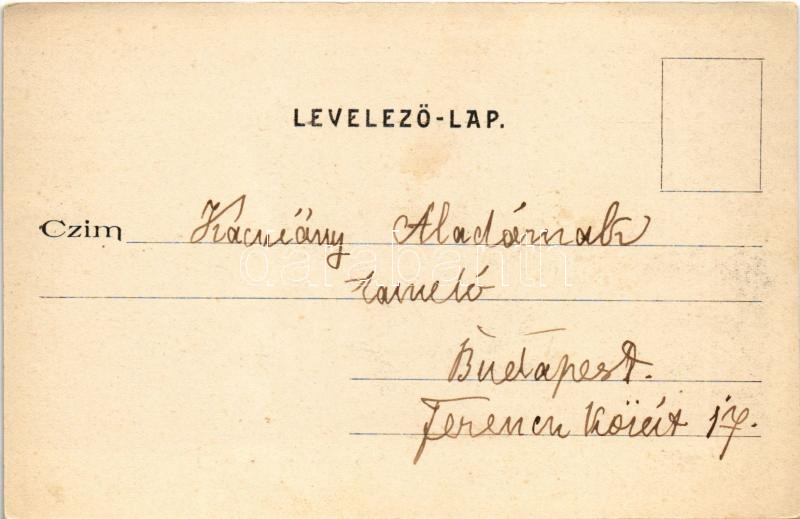 LEVELEZŐ-LAP.
Czim Kármány Aladárnak
tanuló
Budapest.
Ferencz Körút 17.
darabanth